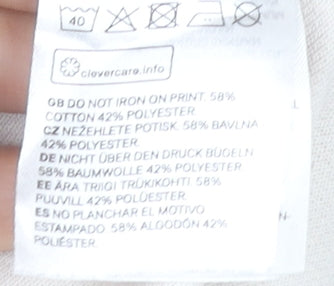 40
clevercare.info
GB DO NOT IRON ON PRINT. 58%
COTTON 42% POLYESTER
CZ NEŽEHLETE POTISK. 58% BAVLNA
42% POLYESTER
DE NICHT ÜBER DEN DRUCK BÜGELN
58% BAUMWOLLE 42% POLYESTER
EE ÄRA TRIIGI TRÜKIKOHTI. 58%
PUUVILL 42% POLÜESTER
ES NO PLANCHAR EL MOTIVO
ESTAMPADO. 58% ALGODÓN 42%
POLIÉSTER